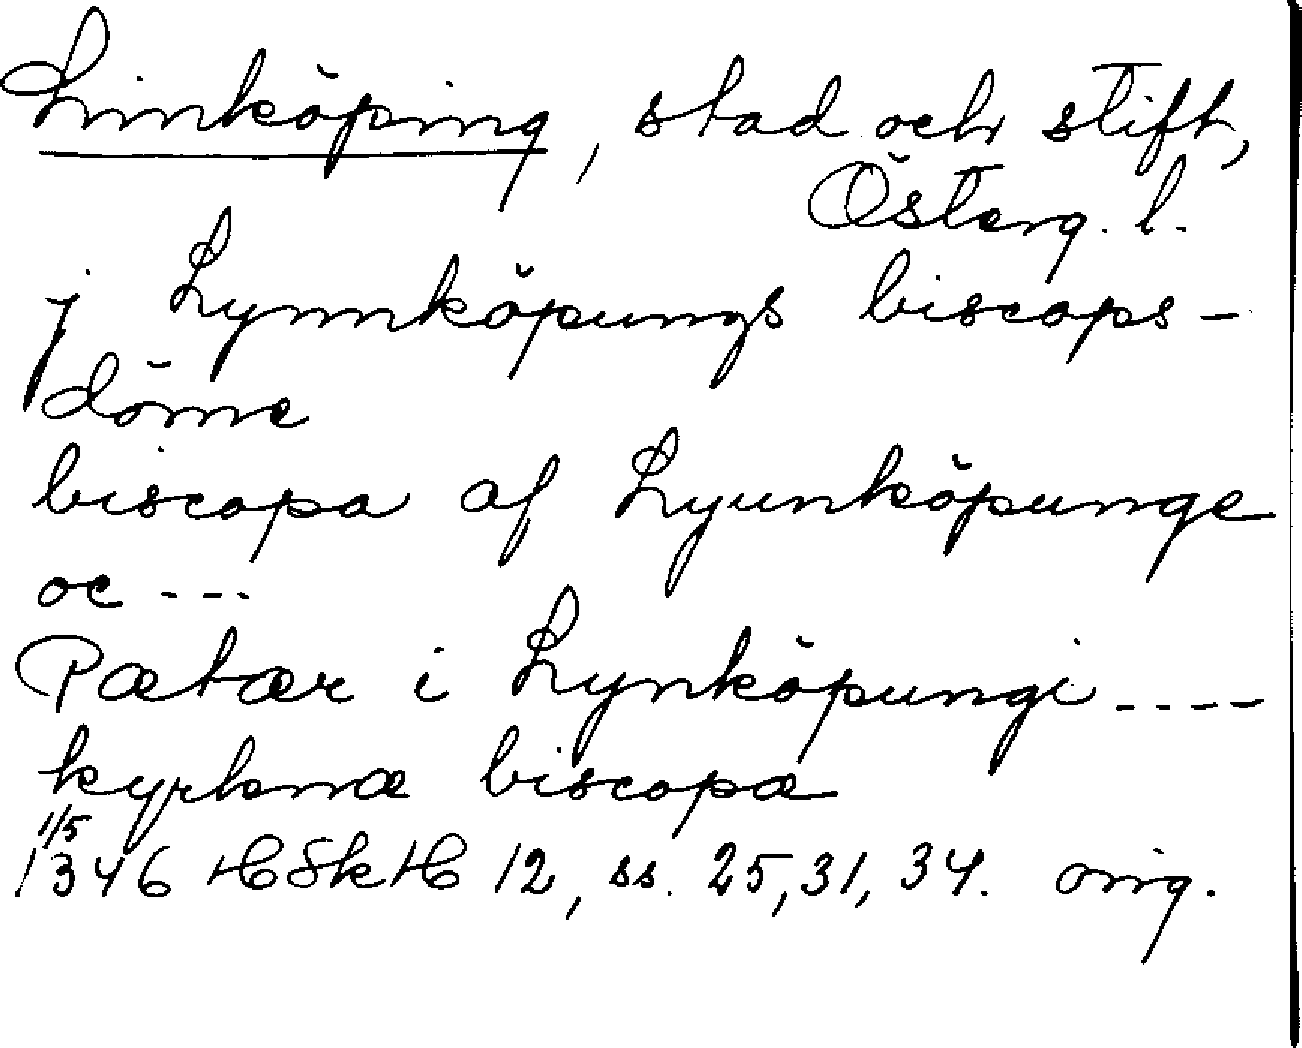 Linköping, stad och stift,
Österg. l.
j Lynnköpungs biscops-
döme
biscopa af Lyunköpunge
oc ---
Pætær i Lynköpungi ----
kyrknæ biscopæ
1/5
1346 HSkH 12, ss. 25, 31, 34. orig.